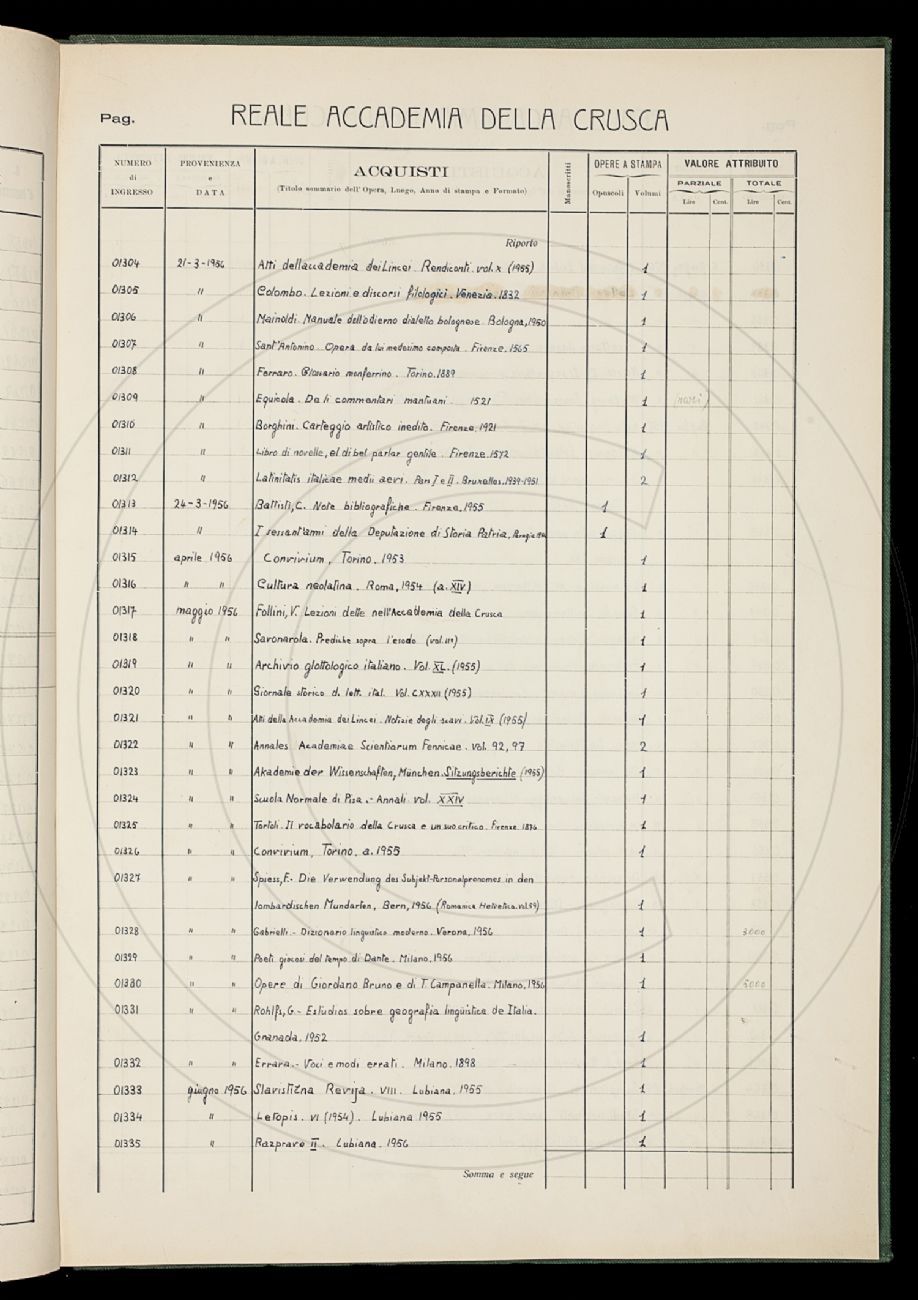 Pag. REALE ACCADEMIA DELLA CRUSCA
NUMERO di INGRESSO PROVENIENZA e DATA ACQUISTI (Titolo sommario dell' Opera, Luogo, Anno di stampa e Formato) Manoscritti OPERE A STAMPA Opuscoli Volumi VALORE ATTRIBUITO PARZIALE Lire Cent. TOTALE Lire Cent.
Riporto
01304 21-3-1956 Atti dell'accademia dei Lincei. Rendiconti. vol. X (1955) 1
01305 " Colombo. Lezioni e discorsi filologici. Venezia. 1832 1
01306 " Mainoldi. Manuale dell'odierno dialetto bolognese. Bologna, 1950 1
01307 " Sant'Antonino. Opera da lui medesimo composta. Firenze. 1565 1
01308 " Ferraro. Glossario monferrino. Torino. 1889 1
01309 " Equicola. De li commentari mantuani. 1521 1
01310 " Borghini. Carteggio artistico inedito. Firenze, 1921 1
01311 " Libro di novelle, et di bel parlar gentile. Firenze. 1572 1
01312 " Latinitatis italicae medii aevi. Pars I e II. Bruxelles. 1939-1951 2
01313 24-3-1956 Battisti, C. Note bibliografiche. Firenze, 1955 1
01314 " I sessant'anni della Deputazione di Storia Patria, Perugia 1
01315 aprile 1956 Convivium, Torino. 1953 1
01316 " " Cultura neolatina. Roma, 1954 (a. XIV) 1
01317 maggio 1956 Follini, V. Lezioni dette nell'Accademia della Crusca 1
01318 " " Savonarola. Prediche sopra l'esodo (vol. II°) 1
01319 " " Archivio glottologico italiano. Vol. XL. (1955) 1
01320 " " Giornale storico d. lett. ital. Vol. CXXXII (1955) 1
01321 " " Atti della Accademia dei Lincei. Notizie degli scavi. Vol. IX (1955) 1
01322 " " Annales Academiae Scientiarum Fennicae. vol. 92, 97 2
01323 " " Akademie der Wissenschaften, München. Sitzungsberichte (1955) 1
01324 " " Scuola Normale di Pisa. - Annali vol. XXIV 1
01325 " " Tortoli. Il vocabolario della Crusca e un suo critico. Firenze. 1876 1
01326 " " Convivium, Torino. a. 1955 1
01327 " " Spiess, F. Die Verwendung des Subjekt-Personalpronomes in den
lombardischen Mundarten, Bern, 1956 (Romanica Helvetica. vol. 59) 1
01328 " " Gabrielli. - Dizionario linguistico moderno. Verona, 1956 1 3000
01329 " " Poeti giocosi del tempo di Dante. Milano, 1956 1
01330 " " Opere di Giordano Bruno e di T. Campanella. Milano, 1956 1 5000
01331 " " Rohlfs, G. - Estudios sobre geografia lingüistica de Italia.
Granada. 1952 1
01332 " " Errera. - Voci e modi errati. Milano. 1898 1
01333 giugno 1956 Slavistična Revija. VIII. Lubiana. 1955 1
01334 " Letopis. VI (1954). Lubiana 1955 1
01335 " Razprave II. Lubiana. 1956 1
Somma e segue